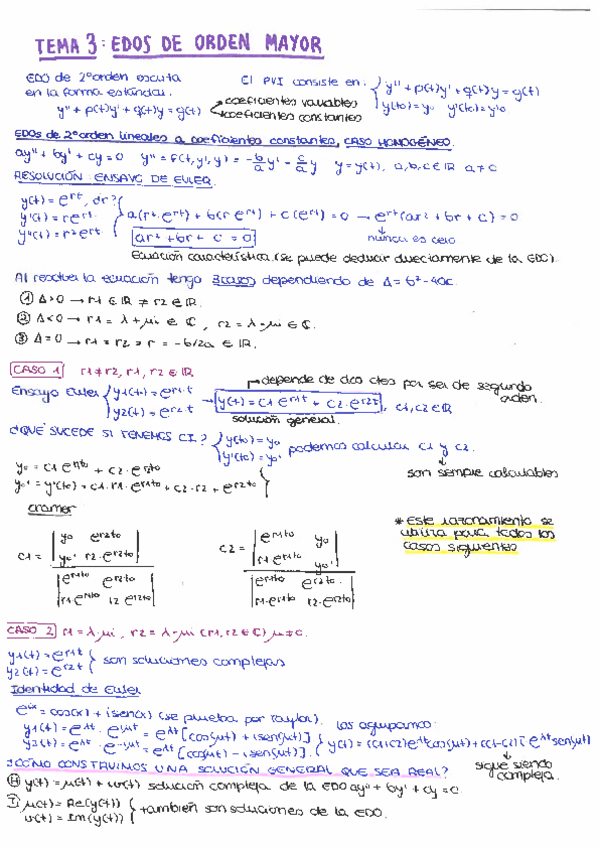 TEMA 3: EDOS DE ORDEN MAYOR
EDO de 2º orden escrita en la forma estándar.
y'' + p(t)y' + q(t)y = g(t)
coeficientes variables
coeficientes constantes
El PVI consiste en: { y'' + p(t)y' + q(t)y = g(t)
y(t0) = y0 y'(t0) = y'0
EDOs de 2º orden lineales a coeficientes constantes, CASO HOMOGÉNEO.
ay'' + by' + cy = 0 y'' = f(t, y', y) = -b/a y' - c/a y y = y(t), a, b, c ∈ IR a ≠ 0
RESOLUCIÓN: ENSAYO DE EULER.
y(t) = e^rt, ¿r?
y'(t) = r e^rt
y''(t) = r² e^rt
a(r² · e^rt) + b(r e^rt) + c(e^rt) = 0 → e^rt (ar² + br + c) = 0
ar² + br + c = 0
nunca es cero
Ecuación característica. (se puede deducir directamente de la EDO).
Al resolver la ecuación tengo 3 casos dependiendo de Δ = b² - 4ac.
① Δ > 0 → r1 ∈ IR ≠ r2 ∈ IR.
② Δ < 0 → r1 = λ + μi ∈ C, r2 = λ - μi ∈ C.
③ Δ = 0 → r1 = r2 = r = -b/2a ∈ IR.
CASO 1 r1 ≠ r2, r1, r2 ∈ IR
depende de dos ctes por ser de segundo orden.
Ensayo Euler { y1(t) = e^r1t
y2(t) = e^r2t → y(t) = c1 e^r1t + c2 · e^r2t, c1, c2 ∈ IR
solución general.
¿QUÉ SUCEDE SI TENEMOS CI? { y(t0) = y0
y'(t0) = y0' } podemos calcular c1 y c2.
son siempre calculables
y0 = c1 e^r1t0 + c2 · e^r2t0
y0' = y'(t0) = c1 · r1 · e^r1t0 + c2 · r2 + e^r2t0
cramer
c1 = | y0 e^r2t0 |
| y0' r2 · e^r2t0 |
| e^r1t0 e^r2t0 |
| r1 e^r1t0 r2 e^r2t0 |
c2 = | e^r1t0 y0 |
| r1 e^r1t0 y0' |
| e^r1t0 e^r2t0 |
| r1 · e^r1t0 r2 · e^r2t0 |
* Este razonamiento se
utiliza para todos los
casos siguientes
CASO 2 r1 = λ + μi, r2 = λ - μi (r1, r2 ∈ C) μ ≠ 0.
y1(t) = e^r1t
y2(t) = e^r2t } son soluciones complejas
Identidad de Euler
e^ix = cos(x) + i sen(x) (se prueba por taylor). Las agrupamos:
y1(t) = e^λt · e^iμt = e^λt [cos(μt) + i sen(μt)]
y2(t) = e^λt · e^-iμt = e^λt [cos(μt) - i sen(μt)] { y(t) = (c1+c2) e^λt cos(μt) + (c1-c2) i e^λt sen(μt)
sigue siendo compleja.
¿CÓMO CONSTRUIMOS UNA SOLUCIÓN GENERAL QUE SEA REAL?
Ⓗ y(t) = u(t) + iv(t) solución compleja de la EDO ay'' + by' + cy = 0
Ⓣ u(t) = Re(y(t))
v(t) = Im(y(t)) } también son soluciones de la EDO.